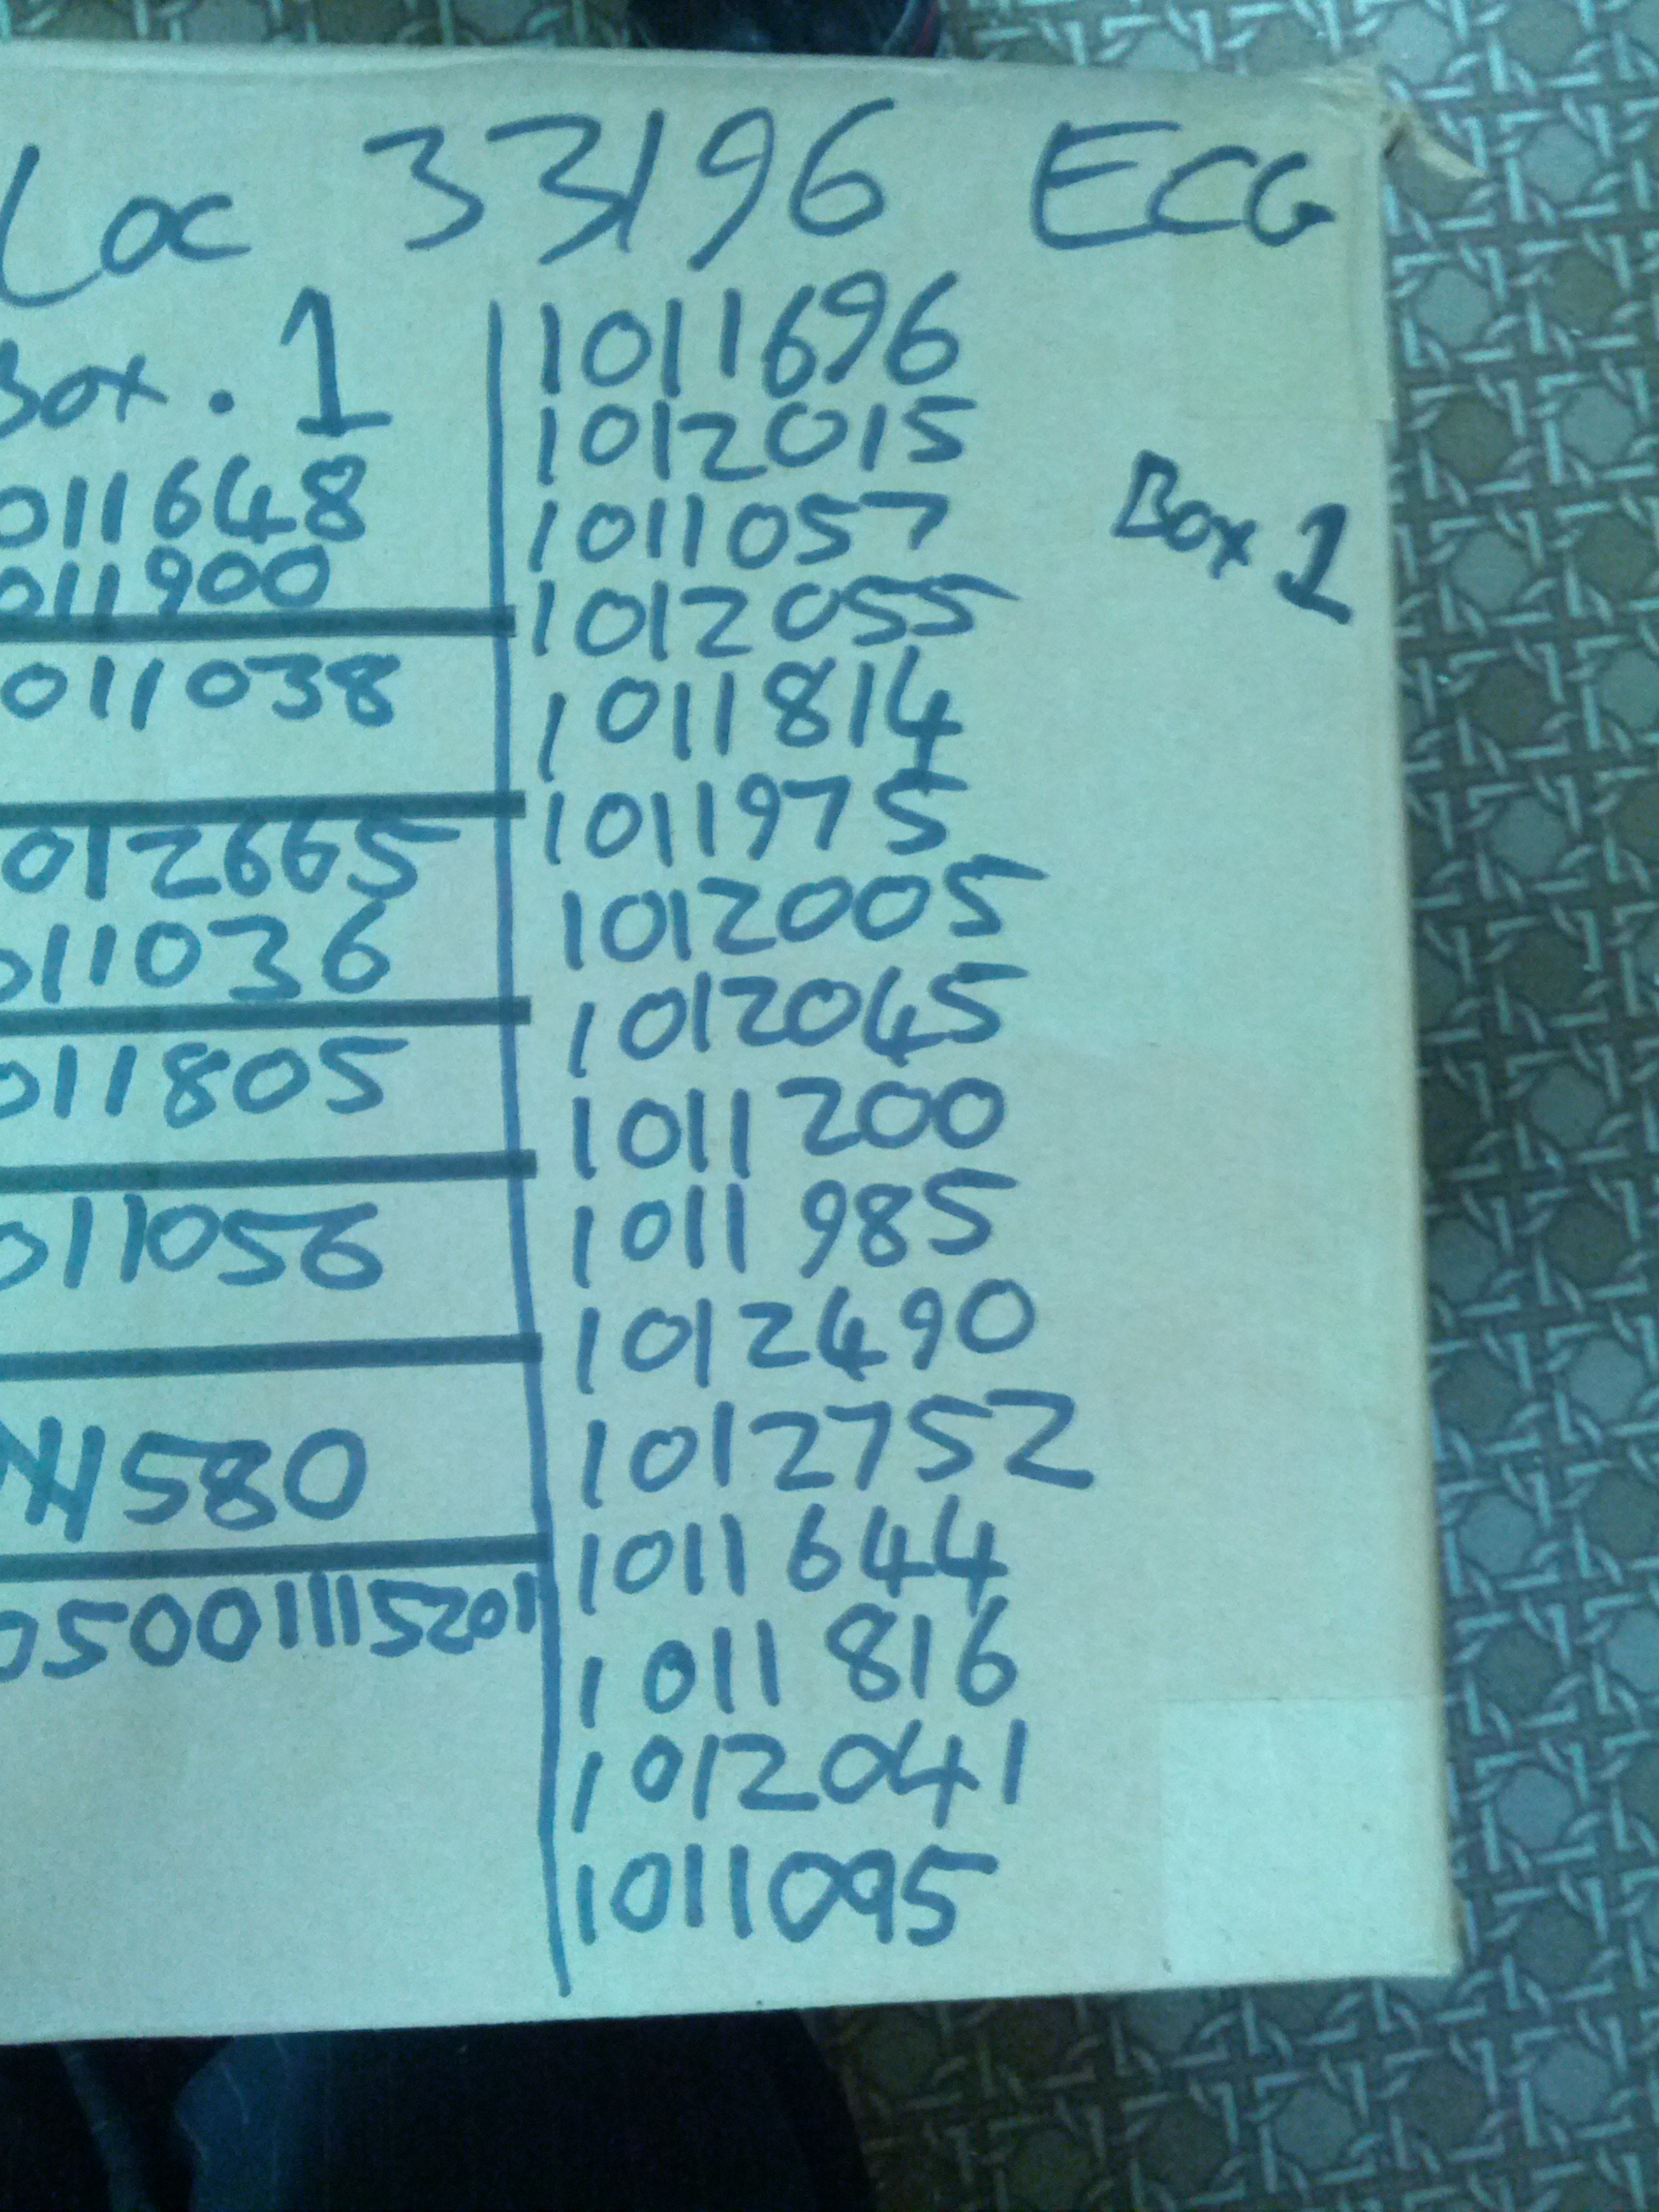 Loc 33196 ECG
Box. 1
011648
011900
011038
012665
011036
011805
011056
580
05001115201
1011696
1012015
1011057
1012055
1011814
1011975
1012005
1012045
1011200
1011985
1012490
1012752
1011644
1011816
1012041
1011095
Box 1